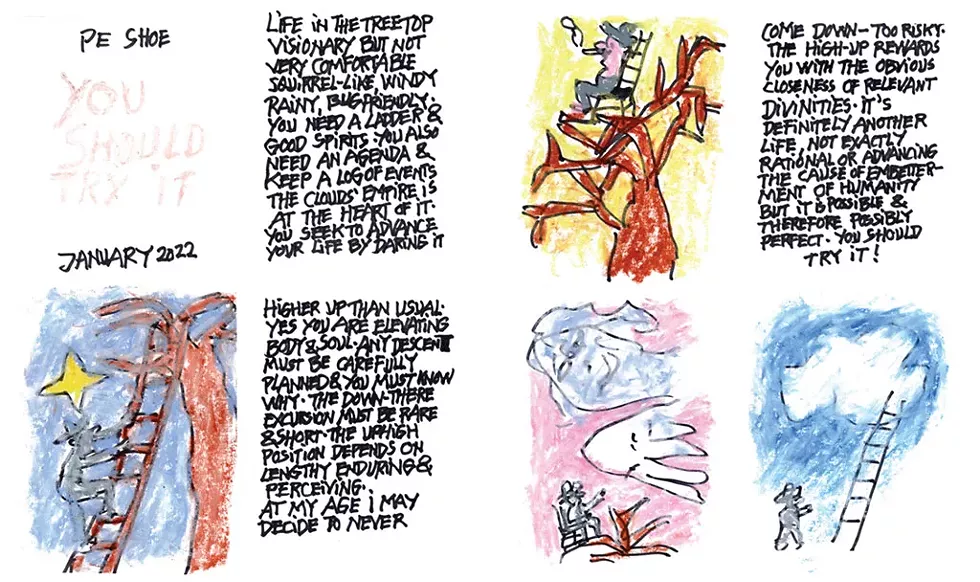 PE SHOE
YOU
SHOULD
TRY IT
JANUARY 2022
LIFE IN THE TREETOP
VISIONARY BUT NOT
VERY COMFORTABLE
SQUIRREL-LIKE, WINDY
RAINY, BUG-FRIENDLY.
YOU NEED A LADDER &
GOOD SPIRITS. YOU ALSO
NEED AN AGENDA &
KEEP A LOG OF EVENTS
THE CLOUDS' EMPIRE IS
AT THE HEART OF IT.
YOU SEEK TO ADVANCE
YOUR LIFE BY DARING IT
HIGHER UP THAN USUAL.
YES YOU ARE ELEVATING
BODY & SOUL. ANY DESCENT
MUST BE CAREFULLY
PLANNED & YOU MUST KNOW
WHY. THE DOWN-THERE
EXCURSION MUST BE RARE
& SHORT. THE UPHIGH
POSITION DEPENDS ON
LENGTHY ENDURING &
PERCEIVING.
AT MY AGE i MAY
DECIDE TO NEVER
COME DOWN - TOO RISKY.
THE HIGH-UP REWARDS
YOU WITH THE OBVIOUS
CLOSENESS OF RELEVANT
DIVINITIES. IT'S
DEFINITELY ANOTHER
LIFE, NOT EXACTLY
RATIONAL OR ADVANCING
THE CAUSE OF EMBETTER-
MENT OF HUMANITY
BUT IT IS POSSIBLE &
THEREFORE POSSIBLY
PERFECT. YOU SHOULD
TRY IT!